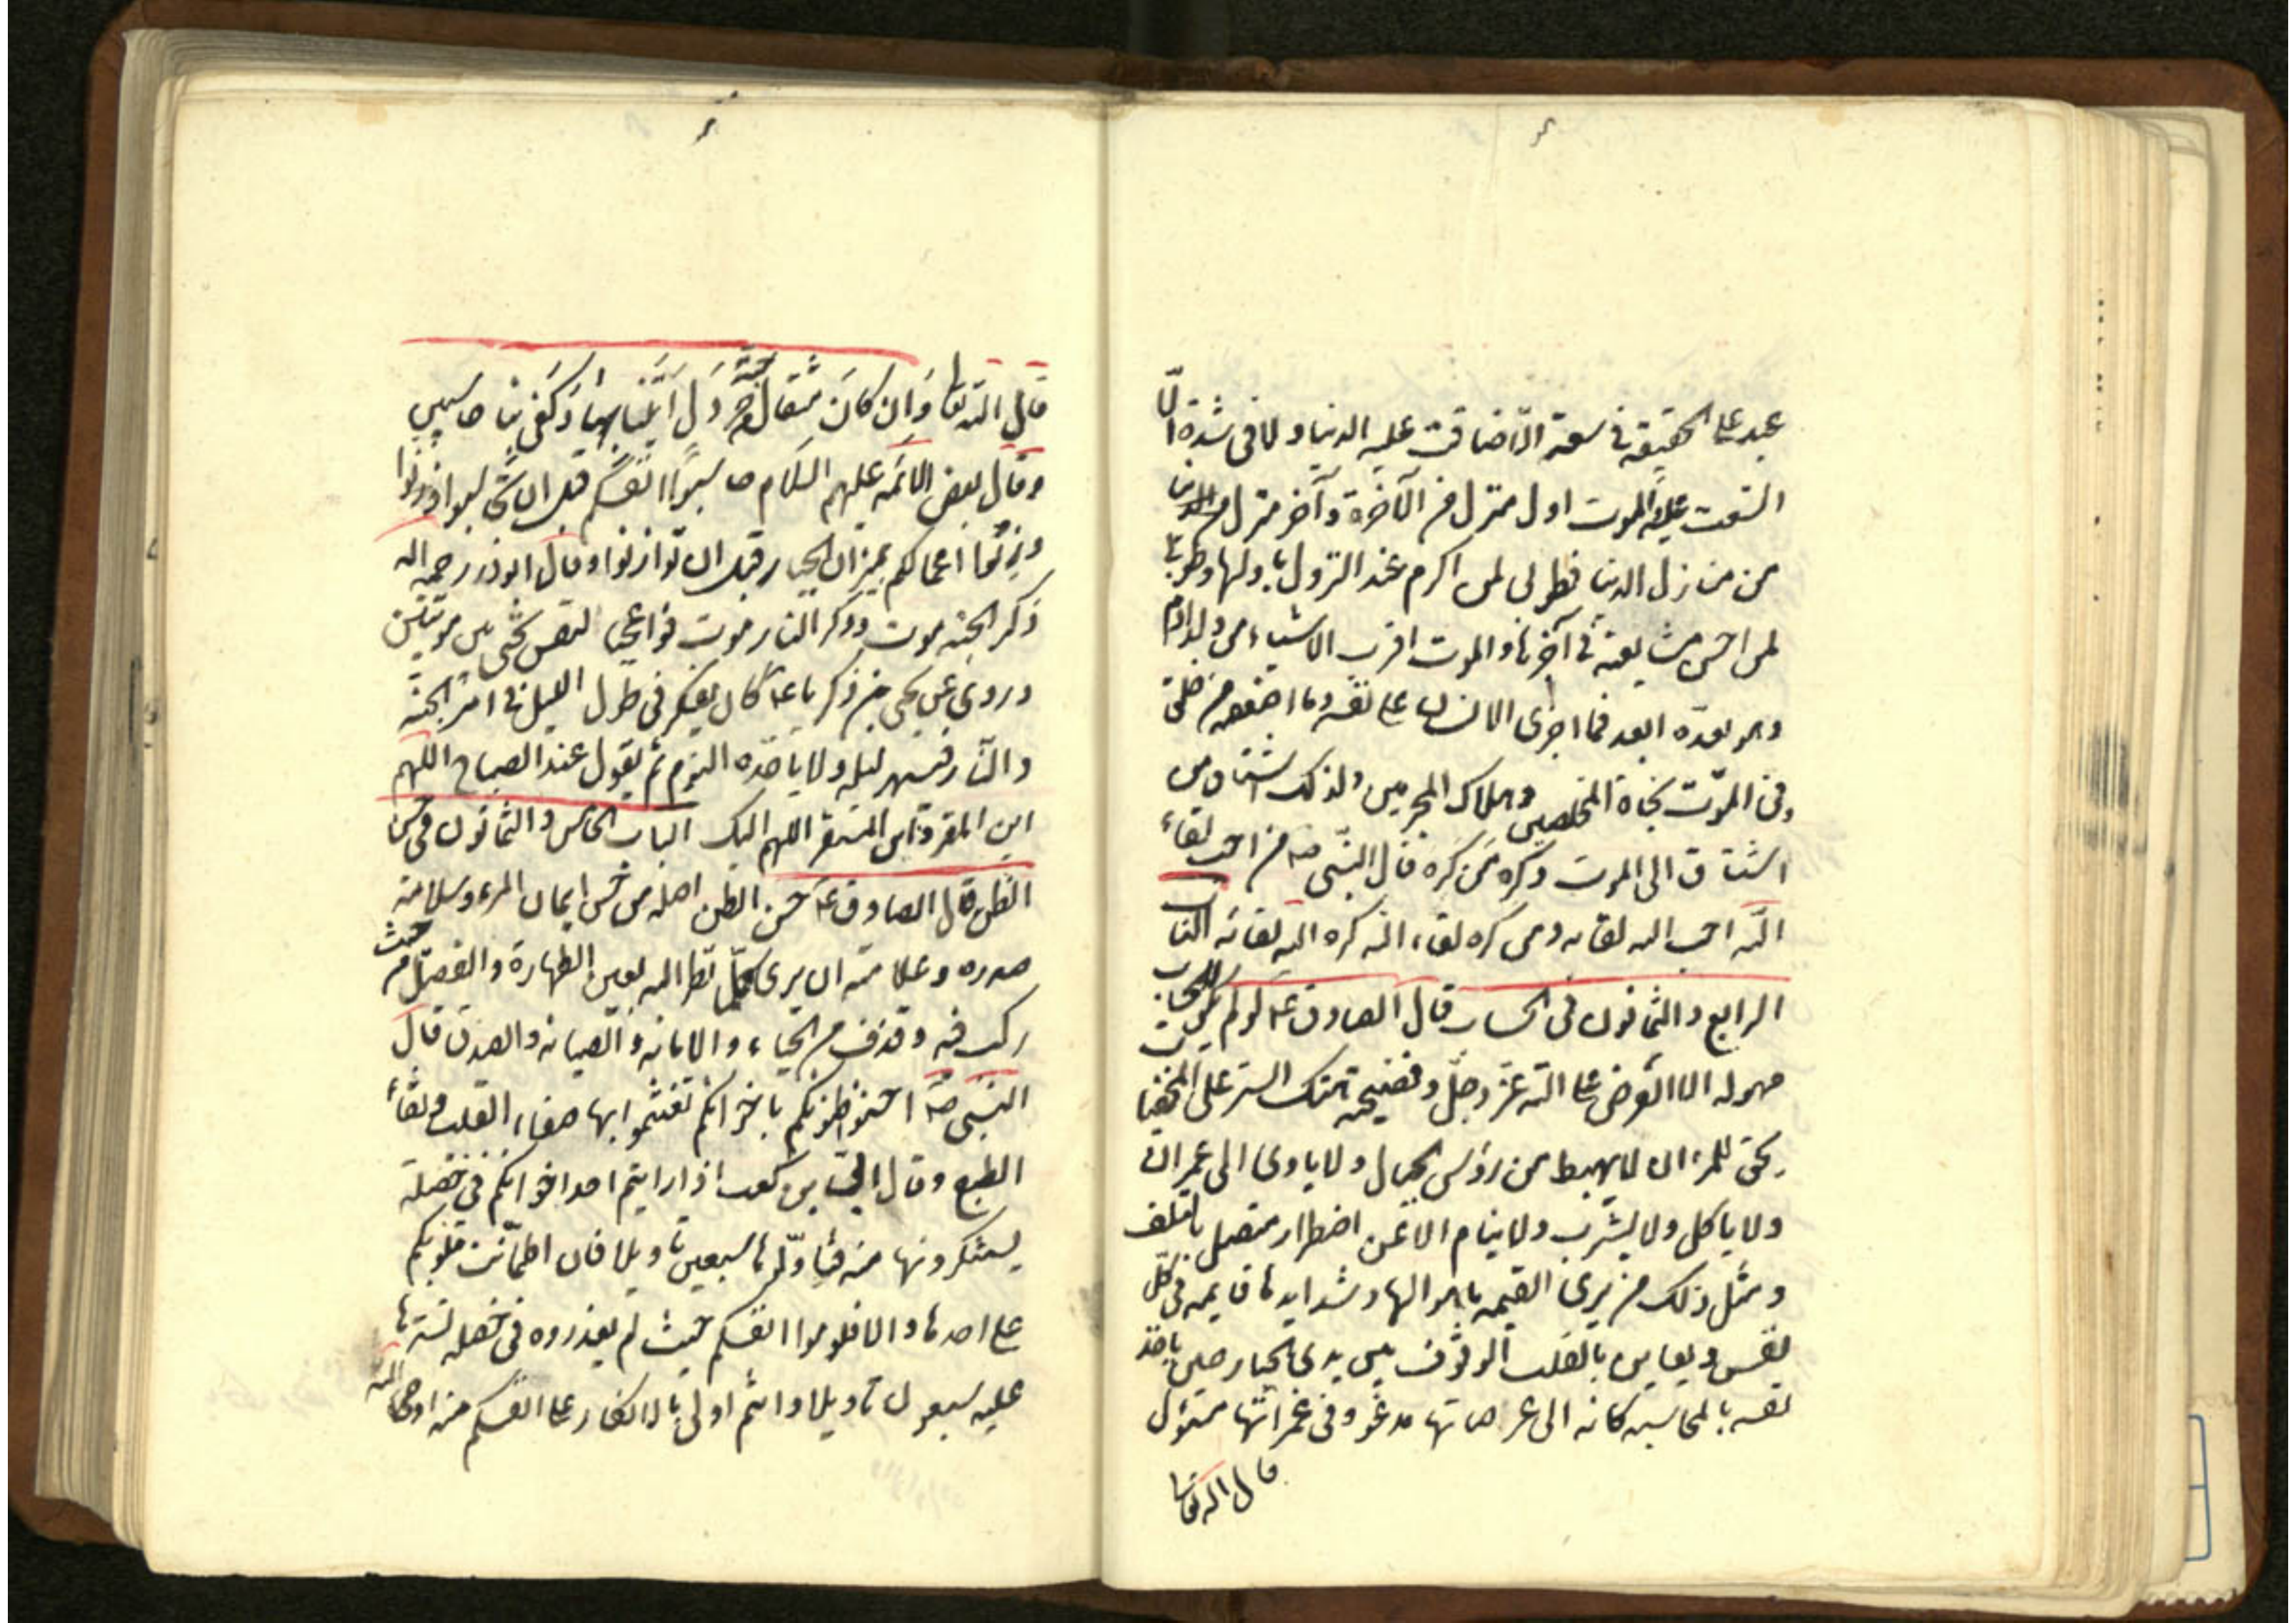 عبد على الحقيقة في سعة الا ضاقت عليه الدنيا ولا في شدة الا
اتسعت عليه والموت اول منزل من الآخرة وآخر منزل من الدنيا
من منازل الدنيا فطوبى لمن اكرم عند النزول باولها وطوبى
لمن احسن مشايعته في آخرها والموت اقرب الاشياء من ولد آدم
وهو يعده ابعد فما اجرى الانسان على نفسه وما اضعفه من خلق
وفي الموت نجاة المخلصين وهلاك المجرمين ولذلك اشتاق من
اشتاق الى الموت وكره من كره قال النبي صه من احب لقاء
الله احب الله لقائه ومن كره لقاء الله كره الله لقائه الباب
الرابع والثمانون في الحساب قال الصادق عه لو لم يكن للحساب
مهولة الا العرض على الله عز وجل وفضيحة هتك الستر على المخفيات
يحق للمرء ان لا يهبط من رؤس الجبال ولا ياوى الى عمران
ولا ياكل ولا يشرب ولا ينام الا عن اضطرار متصل بالتلف
ومثل ذلك من يرى القيمة باهوالها وشدايدها قايمة في كل
نفس ويعاين بالقلب الوقوف بين يدي الجبار حينئذ ياخذ
نفسه بالمحاسبة كانه الى عرصاتها مدعو وفي غمراتها مسئول
قال الله تعالى
قال الله تعا وَاِن كانَ مثقالَ حبّة من خردل اَتَينا بها وَكَفى بنا حاسبين
وقال بعض الائمة عليهم السلام حاسبوا انفسكم قبل ان تحاسبوا وزنوا
وزنوا اعمالكم بميزان الحياء قبل ان توازنوا وقال ابوذر رحمه الله
ذكر الجنة موت وذكر النار موت فواعجبا لنفس تحيى بين موتتين
وروى عن يحيى بن زكريا عه كان يفكر في طول الليل في امر الجنة
والنار فيسهر ليله ولا ياخذه النوم ثم يقول عند الصباح اللهم
اين المفر واين المستقر اللهم اليك الباب الخامس والثمانون في حسن
الظن قال الصادق عه حسن الظن اصله من حسن ايمان المرء وسلامة
صدره وعلامته ان يرى كلما نظر اليه بعين الطهارة والفضل من حيث
ركب فيه وقذف من الحياء والامانة والصيانة والصدق قال
النبي صه احسنوا ظنونكم باخوانكم تغتنموا بها صفاء القلب ونقاء
الطبع وقال ابي بن كعب اذا رايتم احد اخوانكم في خصلة
يستنكرونها منه فتاولوها سبعين تاويلا فان اطمانت قلوبكم
على احدها والا فلوموا انفسكم حيث لم يعذروه في خصلة تسترها
عليه سبعون تاويلا وانتم اولى بالانكار على انفسكم منه اوحى الله